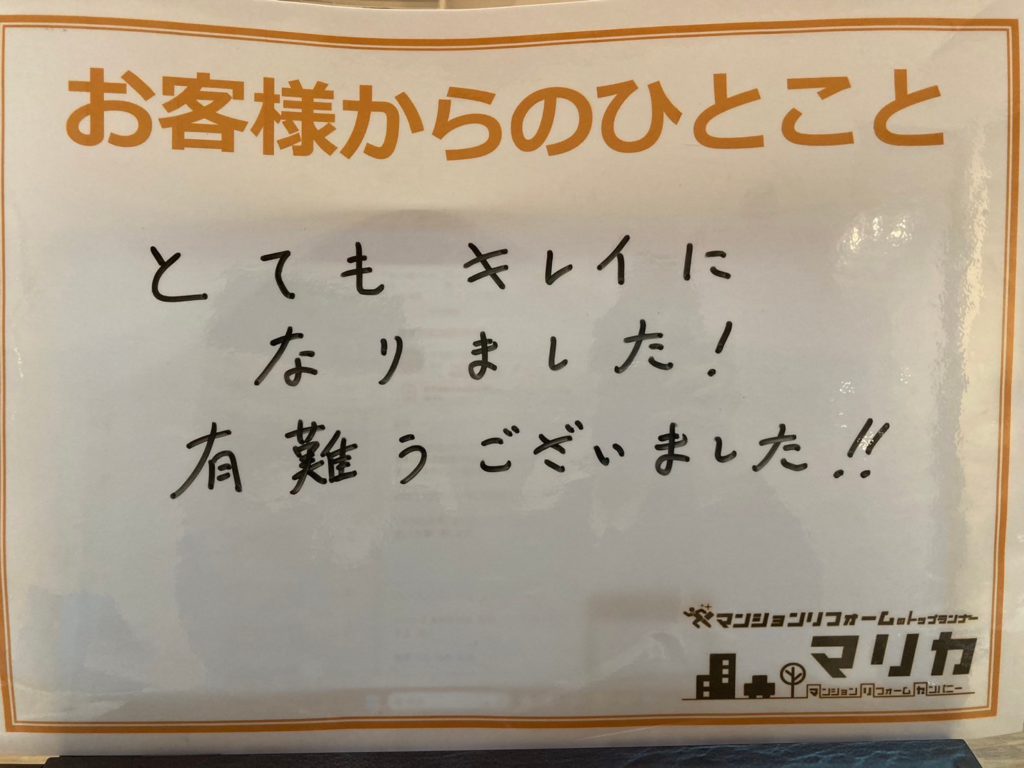 お客様からのひとこと
とても キレイに
なりました!
有難うございました!!
マンションリフォームのトップランナー
マリカ
マンションリフォームカンパニー